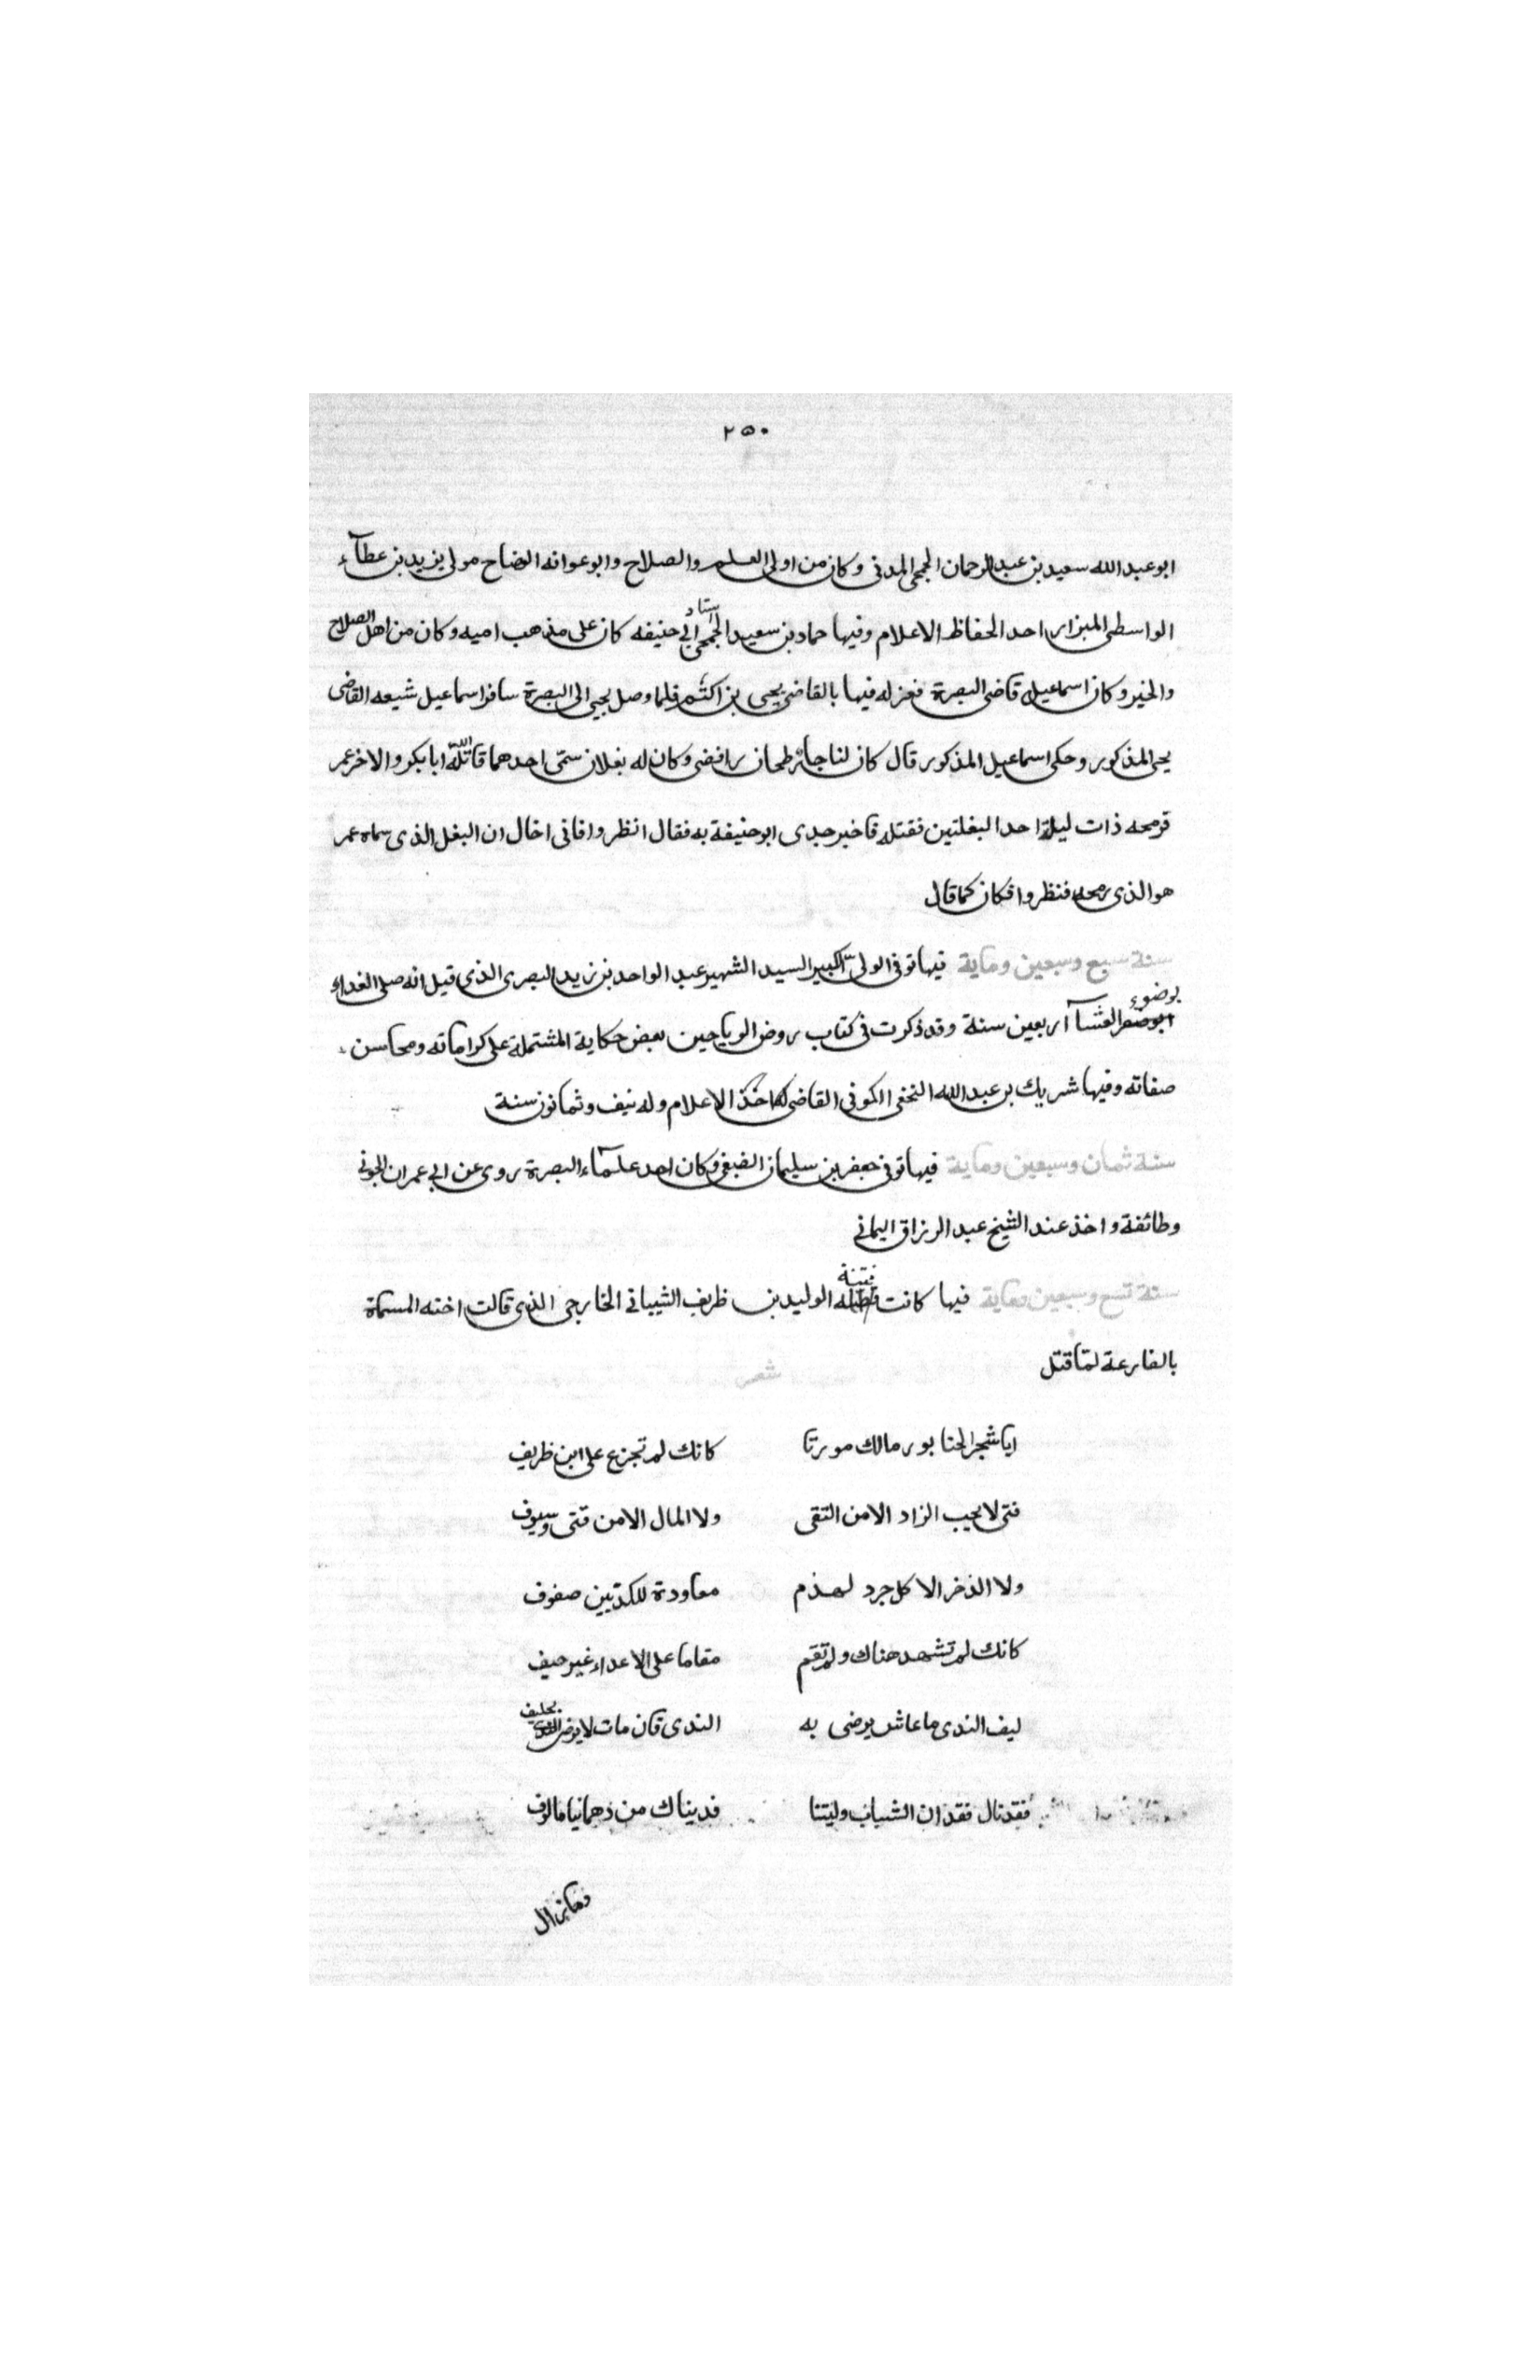 ٢٥٠
ابو عبد الله سعيد بن عبد الرحمان الجمحى المدنى وكان من اولى العلم والصلاح وابو عوانه الوضاح مولى يزيد بن عطآء
الواسطى المبزار احد الحفاظ الاعلام وفيها حماد بن سعيد الجمحى استاد ابى حنيفه كان على مذهب اميه وكان من اهل الصلاح
والخير وكان اسماعيله قاضى البصرة فعزله فيها بالقاضى يحيى بن اكثم فلما وصل يحيى الى البصرة سافر اسماعيل شيعه القاضى
يحيى المذكور وحكى اسماعيل المذكور قال كان لنا جار طحان رافضى وكان له بغلان سمّى احدهما قاتله الله ابا بكر والاخر عمر
فرمحه ذات ليلة احد البغلتين فقتله فاخبر جدى ابو حنيفة به فقال انظروا فانى اخال ان البغل الذى سماه عمر
هو الذى رمحه فنظروا فكان كما قال
سنة سبع وسبعين وماية فيها توفى الولى الكبير السيد الشهير عبد الواحد بن زيد البصرى الذى قيل انه صلى الغداء
بوضوء العشآ اربعين سنة وقد ذكرت فى كتاب روض الرياحين بعض حكاية المشتملة على كراماته ومحاسن
صفاته وفيها شريك بن عبد الله النخعى الكوفى القاضى احد الاعلام وله نيف وثمانون سنة
سنة ثمان وسبعين وماية فيها توفى جعفر بن سليمان الضبغى وكان احد علمآء البصرة روى عن ابى عمران الجونى
وطائفة واخذ عند الشيخ عبد الرزاق اليمانى
سنة تسع وسبعين وماية فيها كانت فتنة الوليد بن ظريف الشيبانى الخارجى الذى قالت اخته المسماة
بالفارعة لمّا قتل شعر
ايا شجر الخنابور مالك مورتا كانك لم تجزع على ابن ظريف
فتى لا يحب الزاد الا من التقى ولا المال الا من قتى وسيوف
ولا الذخر الا كل جرد لهذم معاودة للكرتين صفوف
كانك لم تشهد هناك ولم تقم مقاما على الاعداء غير حيف
ليف الندى ما عاش يرضى به الندى فان مات لا يرضى الندى بحليف
فقد نال فقدان الشباب وليتنا فديناك من دهمانيا مالوف
وما زال